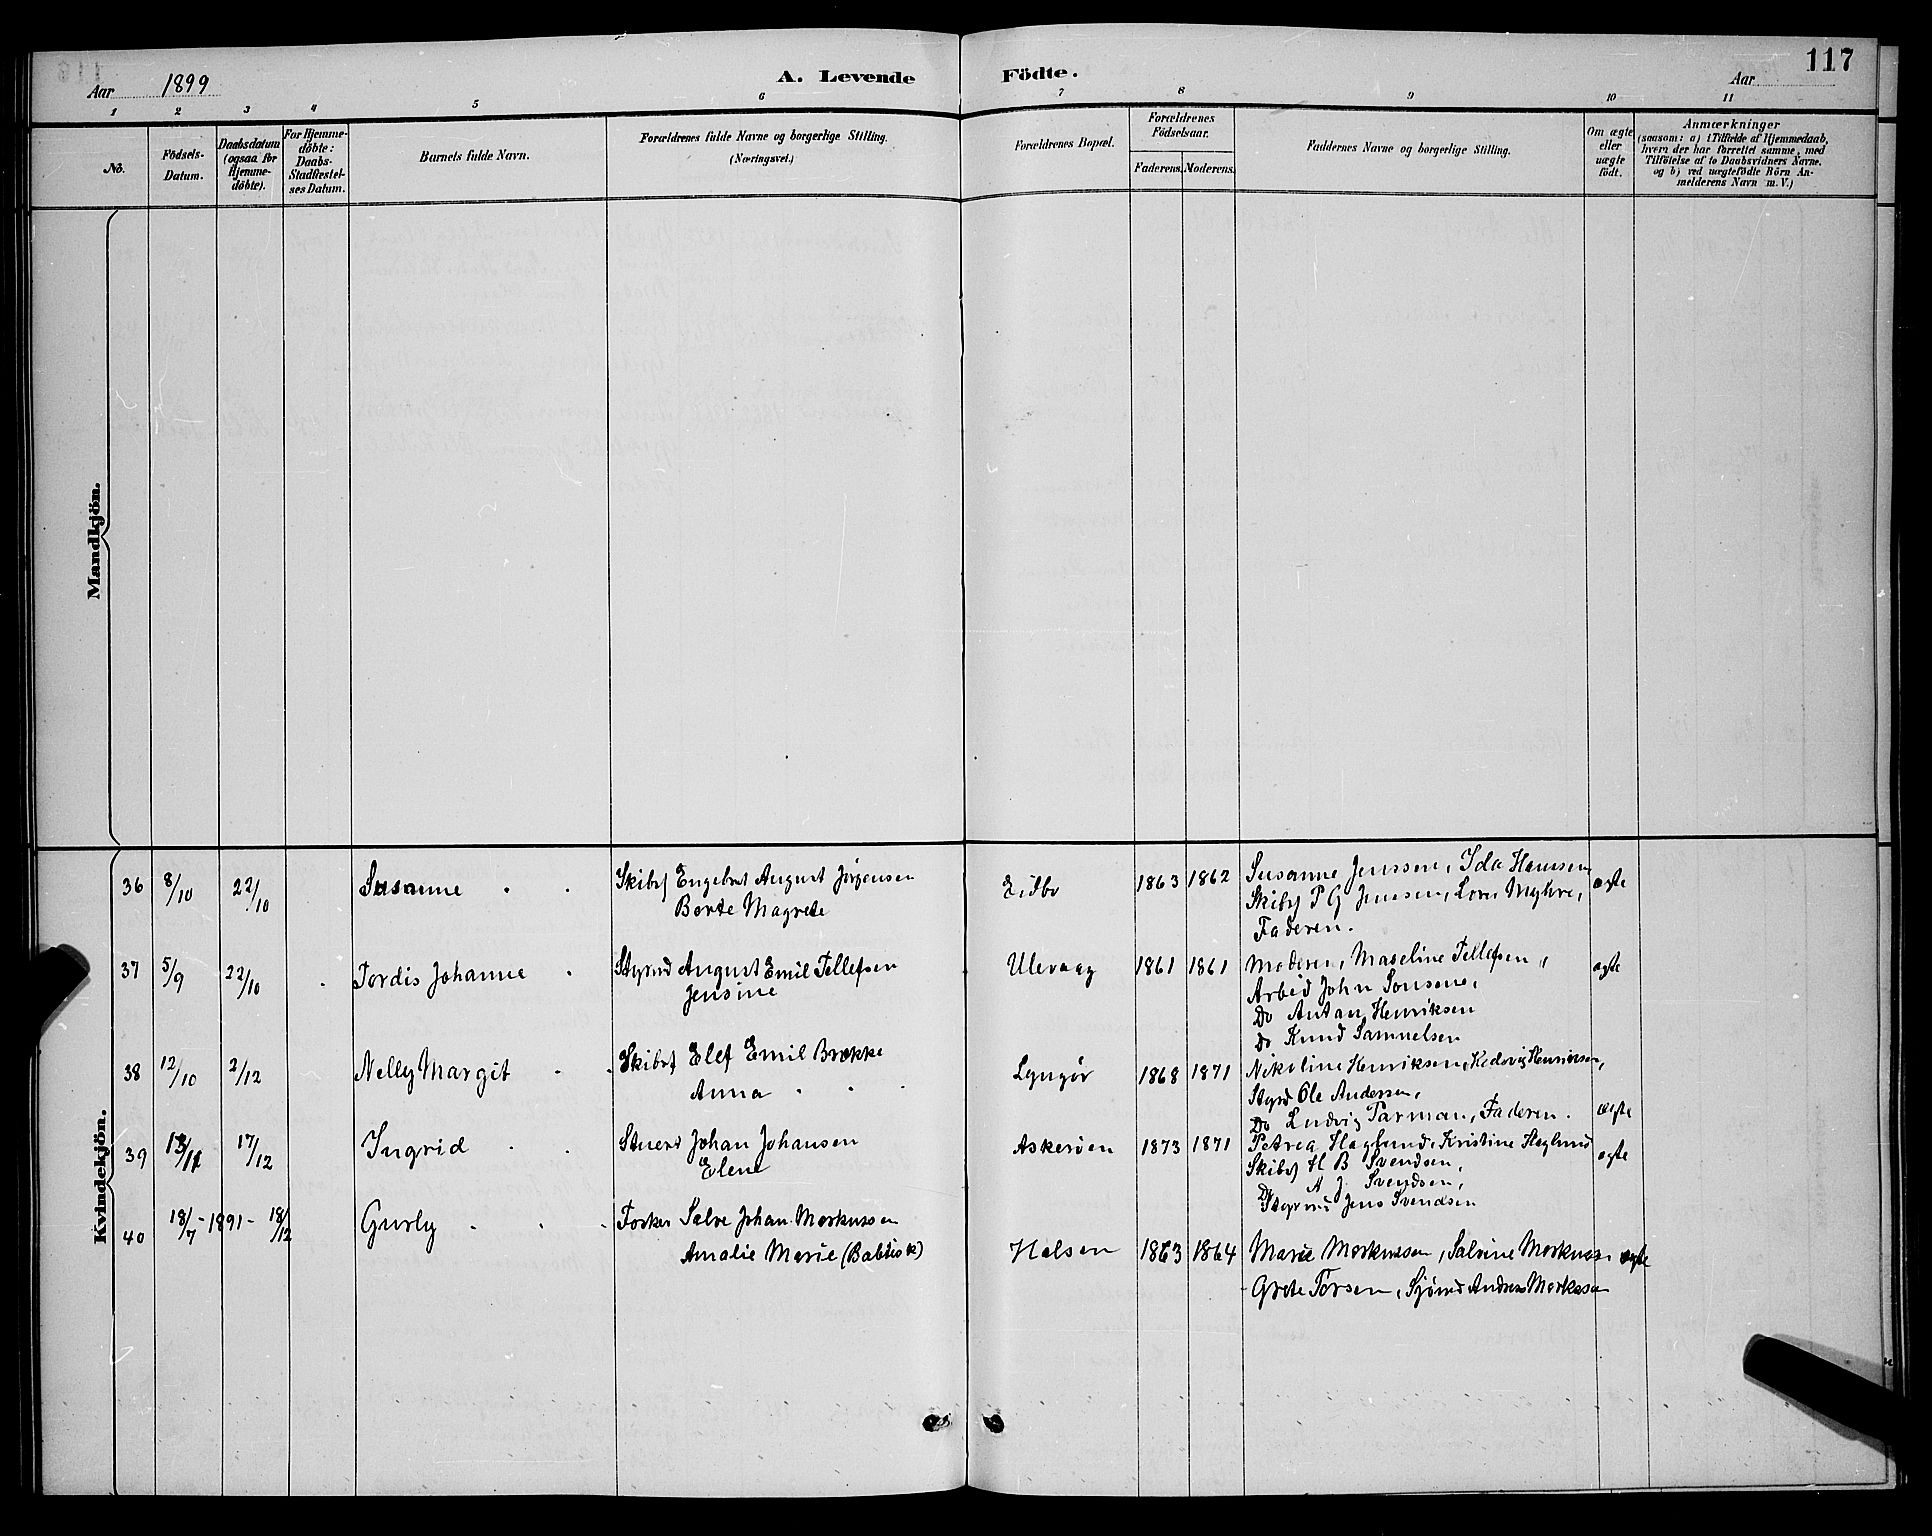 117
Aar 1899 A. Levende Födte. Aar
1 2 3 4 5 6 7 8 9 10 11
No.
Födsels-
Datum.
Daabsdatum
(ogsaa for
Hjemme-
döbte).
For Hjemme-
döbte:
Daabs-
Stadfæstel-
ses Datum.
Barnets fulde Navn.
Forældrenes fulde Navne og borgerlige Stilling.
(Næringsvei.)
Forældrenes Bopæl.
Forældrenes
Födselsaar.
Faderens. Moderens.
Faddernes Navne og borgerlige Stilling.
Om ægte
eller
uægte
födt.
Anmærkninger
(saasom: a) i Tilfælde af Hjemmedaab,
hvem der har forrettet samme, med
Tilföielse af to Daabsvidners Navne.
og b) ved uægtefödte Börn An-
melderens Navn m. V.)
Mandkjön.
Kvindekjön.
36 8/10 22/10 Susanne Skibsf Engebret August Jørgensen
Berte Magrete
Eidbo 1863 1862 Susanne Jenssen, Ida Hanssen
Skibsf P G Jenssen, Myhre,
Faderen.
ægte
37 5/9 22/10 Tordis Johanne Styrmd August Emil Tellefsen
Jensine
Ulevaag 1861 1861 Moderen, Maseline Tellefsen,
Arbeid John
Do Antan Henriksen
Do Knud Samuelsen
ægte
38 12/10 2/12 Nelly Margit Skibsf Elef Emil Brække
Anna
Lyngør 1868 1871 Nikoline Henriksen, Hedevig Henriksen,
Styrd Ole Andersen,
Do Ludvig Parman, Faderen.
ægte
39 13/11 17/12 Ingrid Stuert Johan Johansen
Elene
Askerøen 1873 1871 Petrea Haglund, Kristine Haglund
Skibsf H B Svendsen,
Do A J. Svendsen,
Styrmd Jens Svendsen
ægte
40 18/7 - 1891 - 18/12 Gurly Fisker Salve Johan Markussen
Amalie Marie (Babtist)
Halsen 1863 1864 Marie Markussen, Salvine Markussen
Grete Torsen, Sjømd Andreas Markussen
ægte